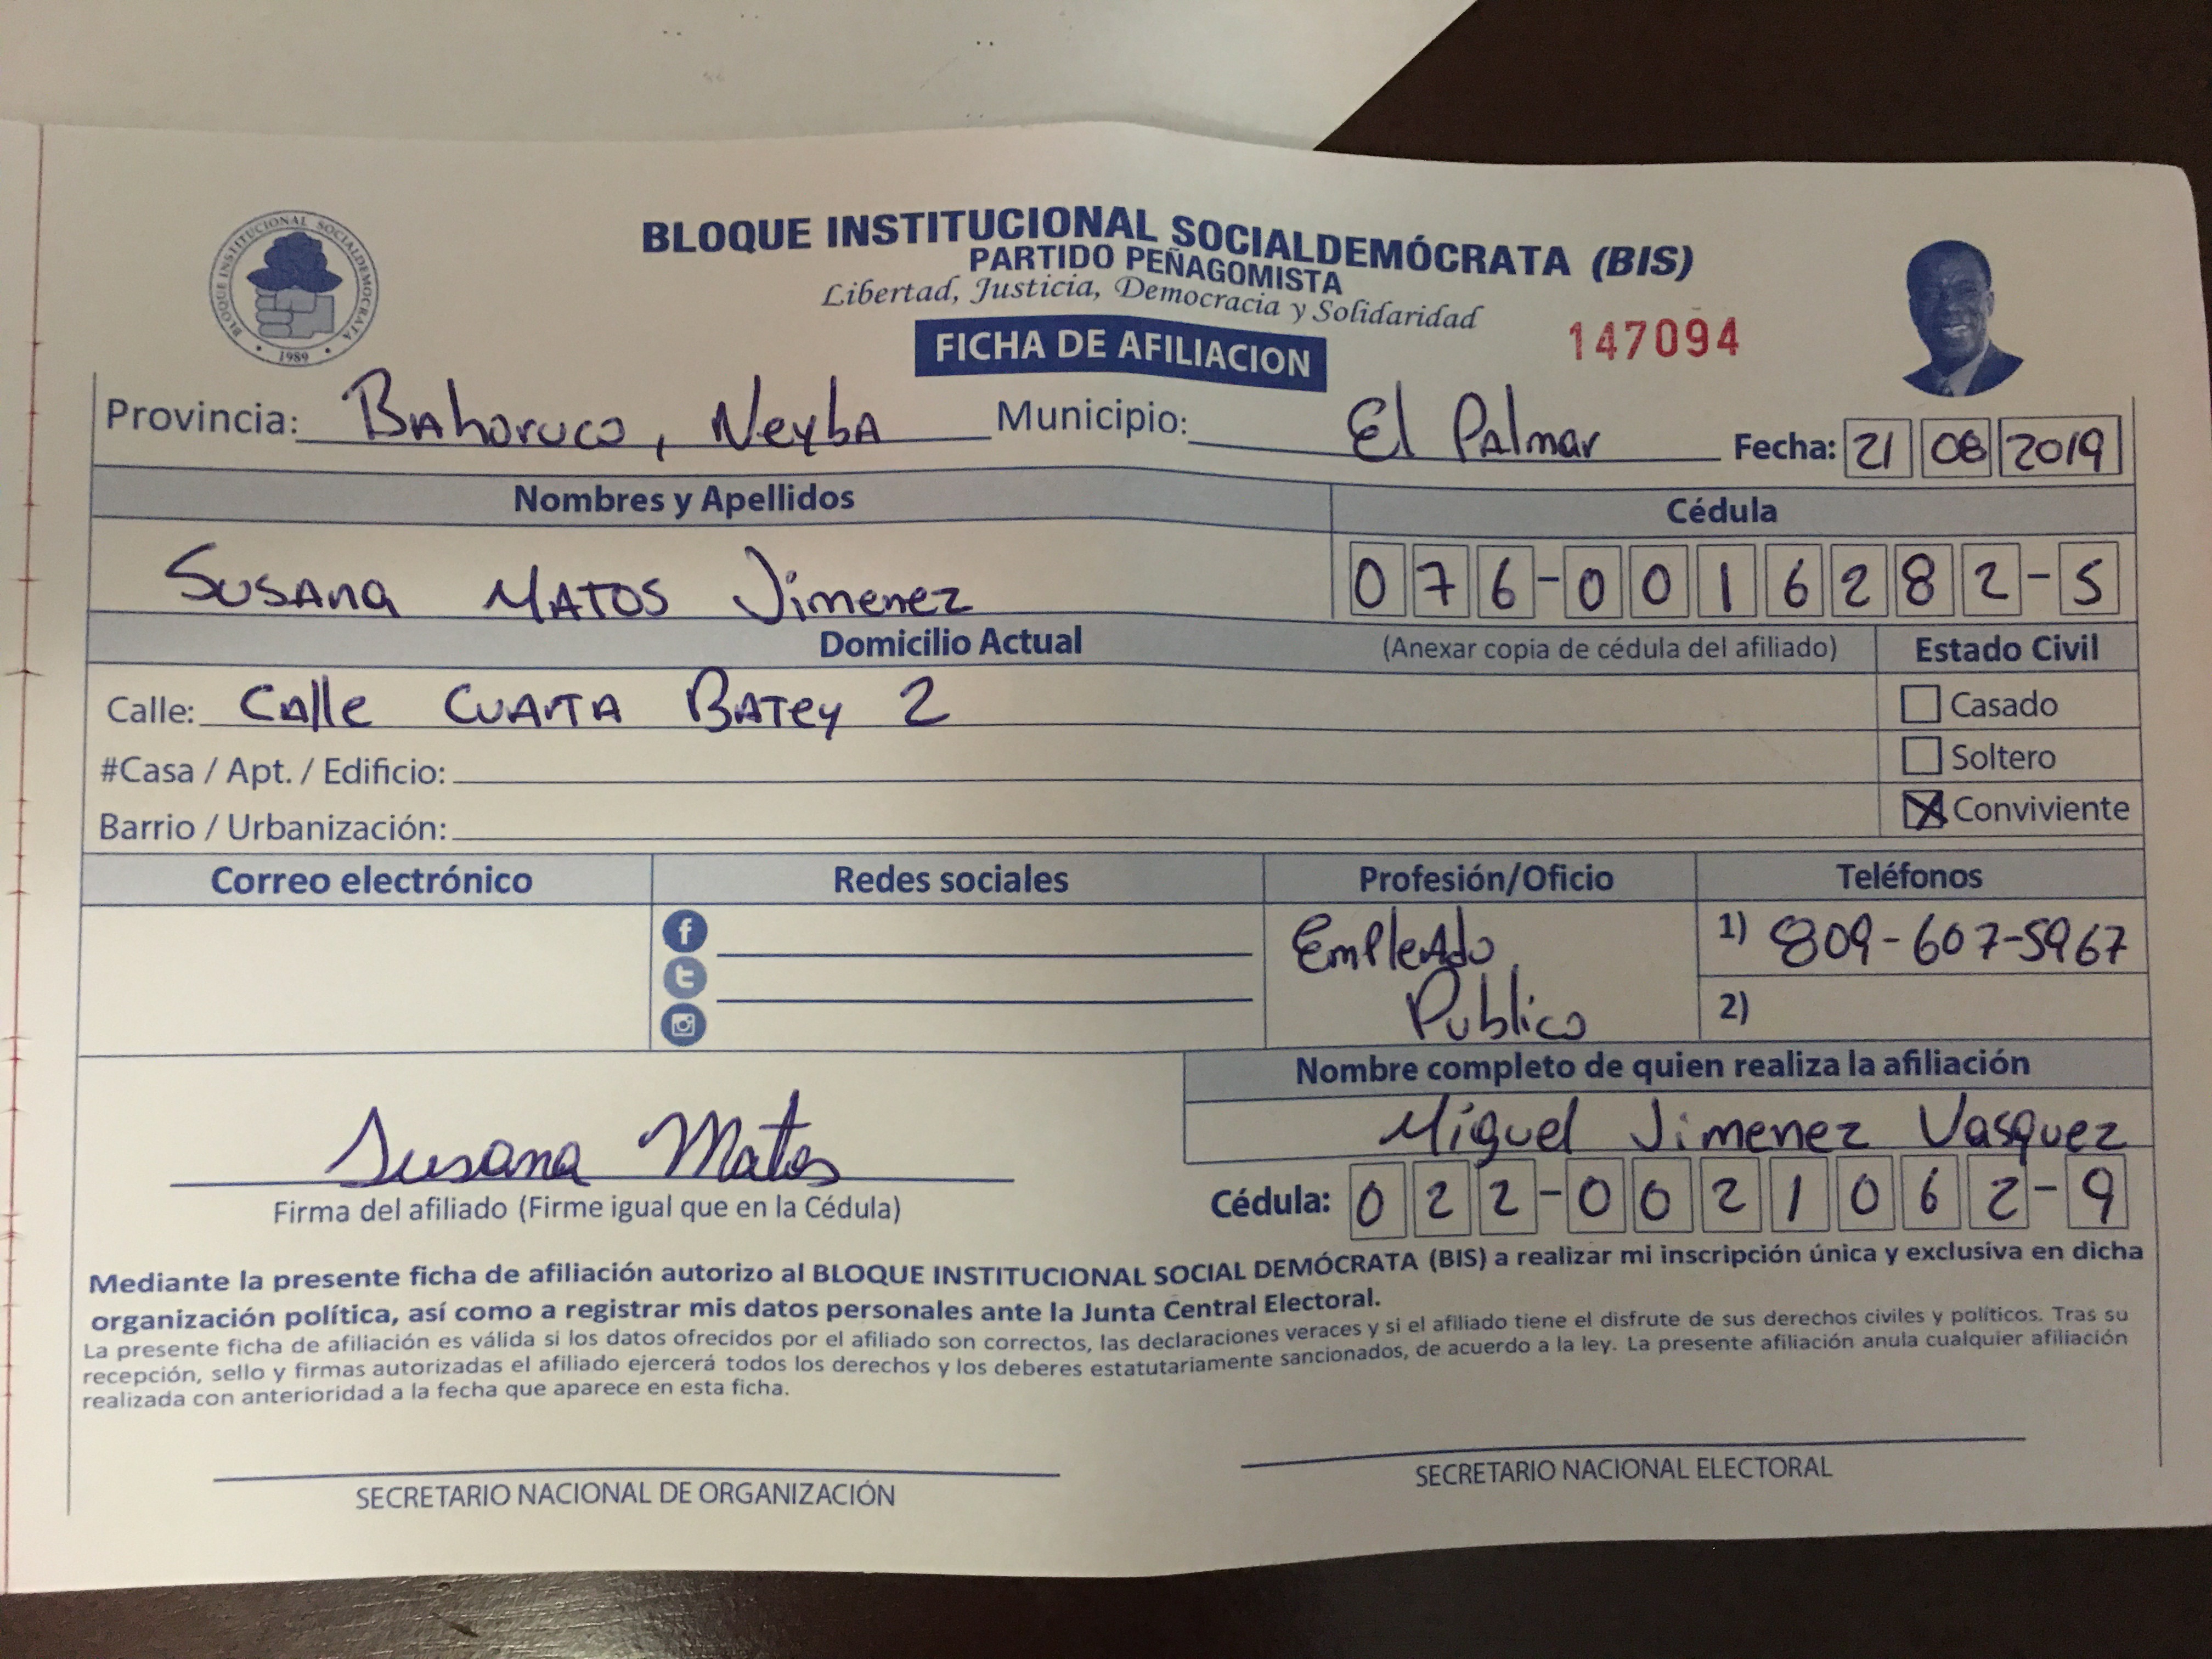 BLOQUE INSTITUCIONAL SOCIALDEMOCRATA
1989
BLOQUE INSTITUCIONAL SOCIALDEMÓCRATA (BIS)
PARTIDO PEÑAGOMISTA
Libertad, Justicia, Democracia y Solidaridad
FICHA DE AFILIACION
147094
Provincia: Bahoruco, Neyba Municipio: El Palmar Fecha: 21 08 2019
Nombres y Apellidos Cédula
Susana Matos Jimenez 076-0016282-5
Domicilio Actual (Anexar copia de cédula del afiliado) Estado Civil
Calle: Calle Cuarta Batey 2
Casado
#Casa / Apt. / Edificio:
Soltero
Barrio / Urbanización:
Conviviente
Correo electrónico Redes sociales Profesión/Oficio Teléfonos
Empleado 1) 809-607-5967
Publico 2)
Nombre completo de quien realiza la afiliación
Susana Matos Miguel Jimenez Vasquez
Firma del afiliado (Firme igual que en la Cédula) Cédula: 022-0021062-9
Mediante la presente ficha de afiliación autorizo al BLOQUE INSTITUCIONAL SOCIAL DEMÓCRATA (BIS) a realizar mi inscripción única y exclusiva en dicha
organización política, así como a registrar mis datos personales ante la Junta Central Electoral.
La presente ficha de afiliación es válida si los datos ofrecidos por el afiliado son correctos, las declaraciones veraces y si el afiliado tiene el disfrute de sus derechos civiles y políticos. Tras su
recepción, sello y firmas autorizadas el afiliado ejercerá todos los derechos y los deberes estatutariamente sancionados, de acuerdo a la ley. La presente afiliación anula cualquier afiliación
realizada con anterioridad a la fecha que aparece en esta ficha.
SECRETARIO NACIONAL DE ORGANIZACIÓN SECRETARIO NACIONAL ELECTORAL